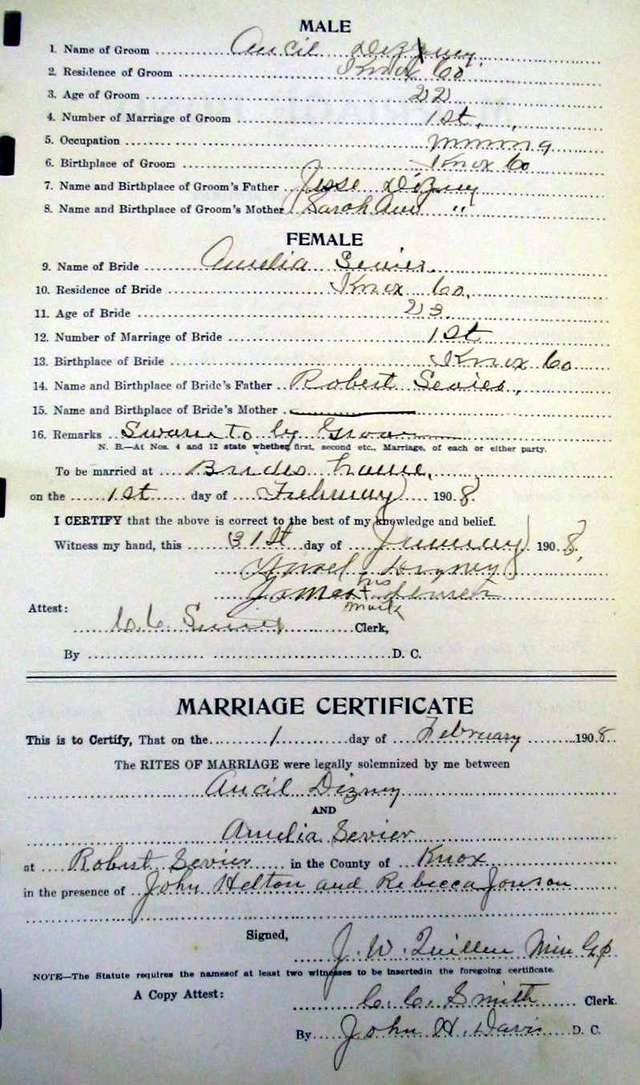 MALE
1. Name of Groom Ancil Dizney.
2. Residence of Groom Knox Co
3. Age of Groom 22
4. Number of Marriage of Groom 1st.
5. Occupation mining
6. Birthplace of Groom Knox Co
7. Name and Birthplace of Groom's Father Jesse Dizney
8. Name and Birthplace of Groom's Mother Sarah Ann "
FEMALE
9. Name of Bride Amelia Sevier.
10. Residence of Bride Knox Co.
11. Age of Bride 23
12. Number of Marriage of Bride 1st
13. Birthplace of Bride Knox Co
14. Name and Birthplace of Bride's Father Robert Sevier,
15. Name and Birthplace of Bride's Mother
16. Remarks Sworn to by Groom
N. B.—At Nos. 4 and 12 state whether first, second etc., Marriage, of each or either party.
To be married at Brides home,
on the 1st day of February 1908
I CERTIFY that the above is correct to the best of my knowledge and belief.
Witness my hand, this 31st day of January 1908,
Dizney
his
James +
mark
Attest:
C. C. Smith Clerk,
By D. C.
MARRIAGE CERTIFICATE
This is to Certify, That on the 1 day of February 1908
The RITES OF MARRIAGE were legally solemnized by me between
Ancil Dizney
AND
Amelia Sevier
at Robert Sevier in the County of Knox
in the presence of John Helton and Rebecca Jonson
Signed,
J. W. Quillen Min Gp
NOTE—The Statute requires the namesof at least two witnesses to be insertedin the foregoing certificate.
A Copy Attest: C. C. Smith Clerk.
By John H. Davis D. C.